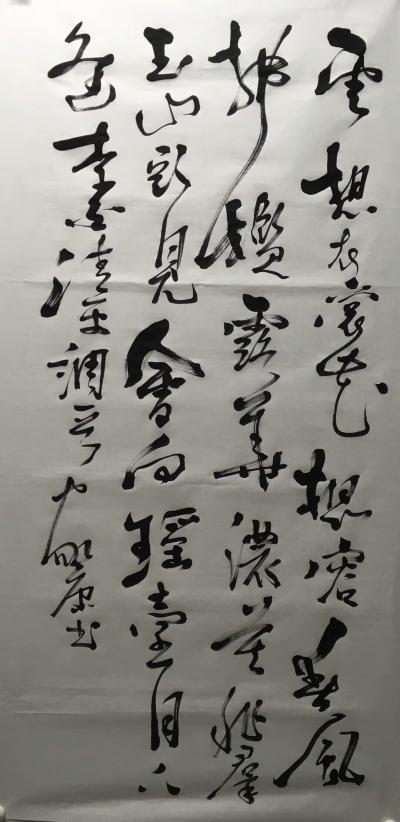 雲想衣裳花想容春風
拂檻露華濃若非羣
玉山頭見會向瑤臺月下
逢李白清平調康書